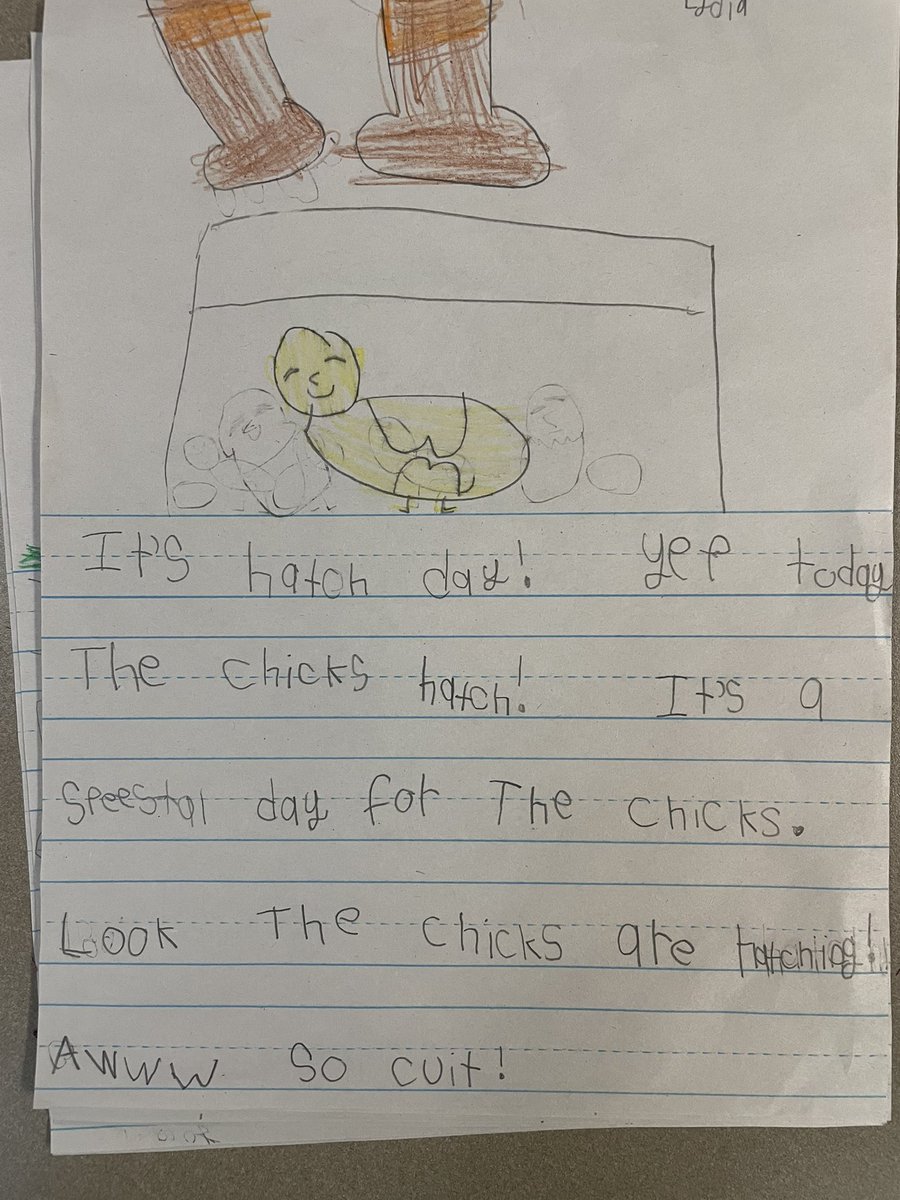 It's hatch day! yep today
The chicks hatch! It's a
Speestal day for The chicks.
Look The chicks are hatching!
Awww so cuit!